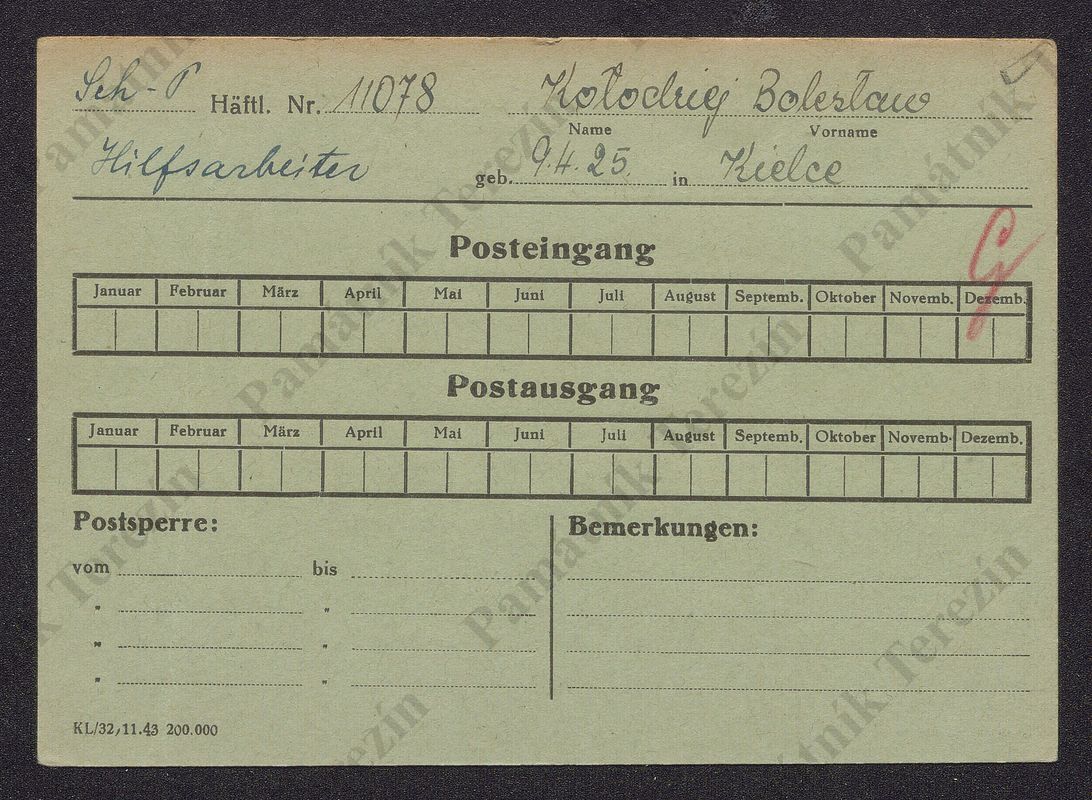 Sch-P Häftl. Nr. 11078 Kołodziej Bolesław
Name Vorname
Hilfsarbeiter geb. 9.4.25. in Kielce
Posteingang
Januar Februar März April Mai Juni Juli August Septemb. Oktober Novemb. Dezemb.
Postausgang
Januar Februar März April Mai Juni Juli August Septemb. Oktober Novemb. Dezemb.
Postsperre: Bemerkungen:
vom bis
" "
" "
" "
KL/32, 11.43 200.000
Památník Terezín